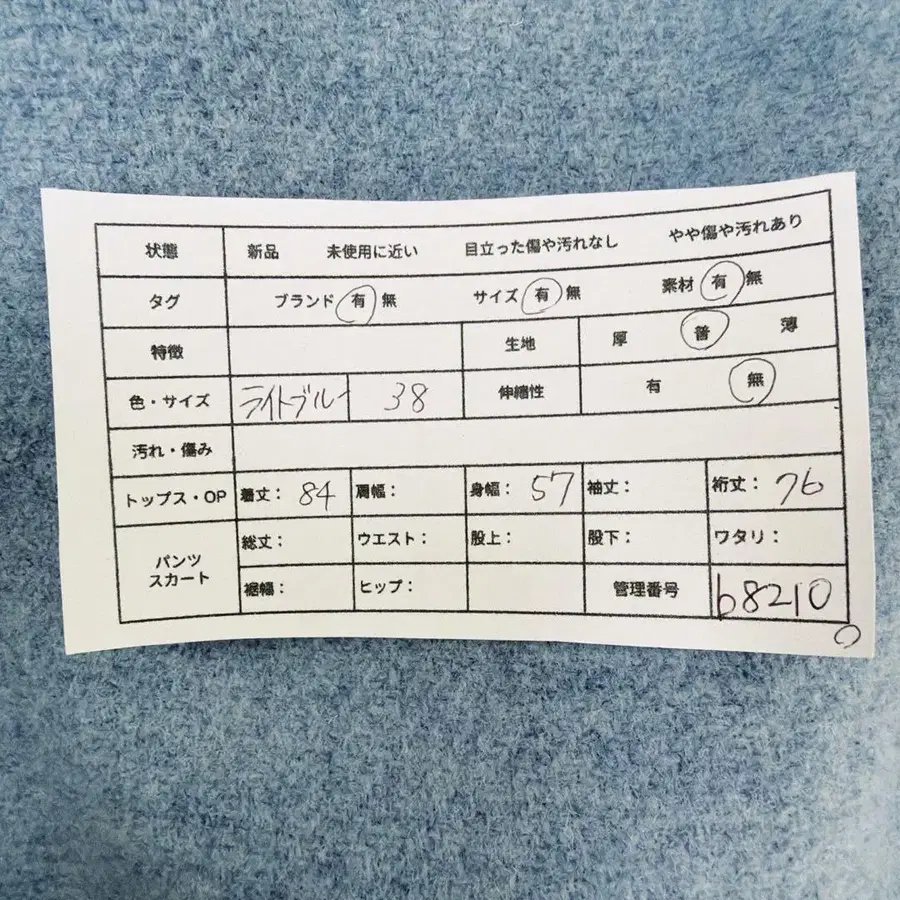 状態 新品 未使用に近い 目立った傷や汚れなし やや傷や汚れあり
タグ ブランド 有 無 サイズ 有 無 素材 有 無
特徴 生地 厚 普 薄
色・サイズ ライトブルー 38 伸縮性 有 無
汚れ・傷み
トップス・OP 着丈: 84 肩幅: 身幅: 57 袖丈: 裄丈: 76
パンツ スカート 総丈: ウエスト: 股上: 股下: ワタリ:
裾幅: ヒップ: 管理番号 b8210